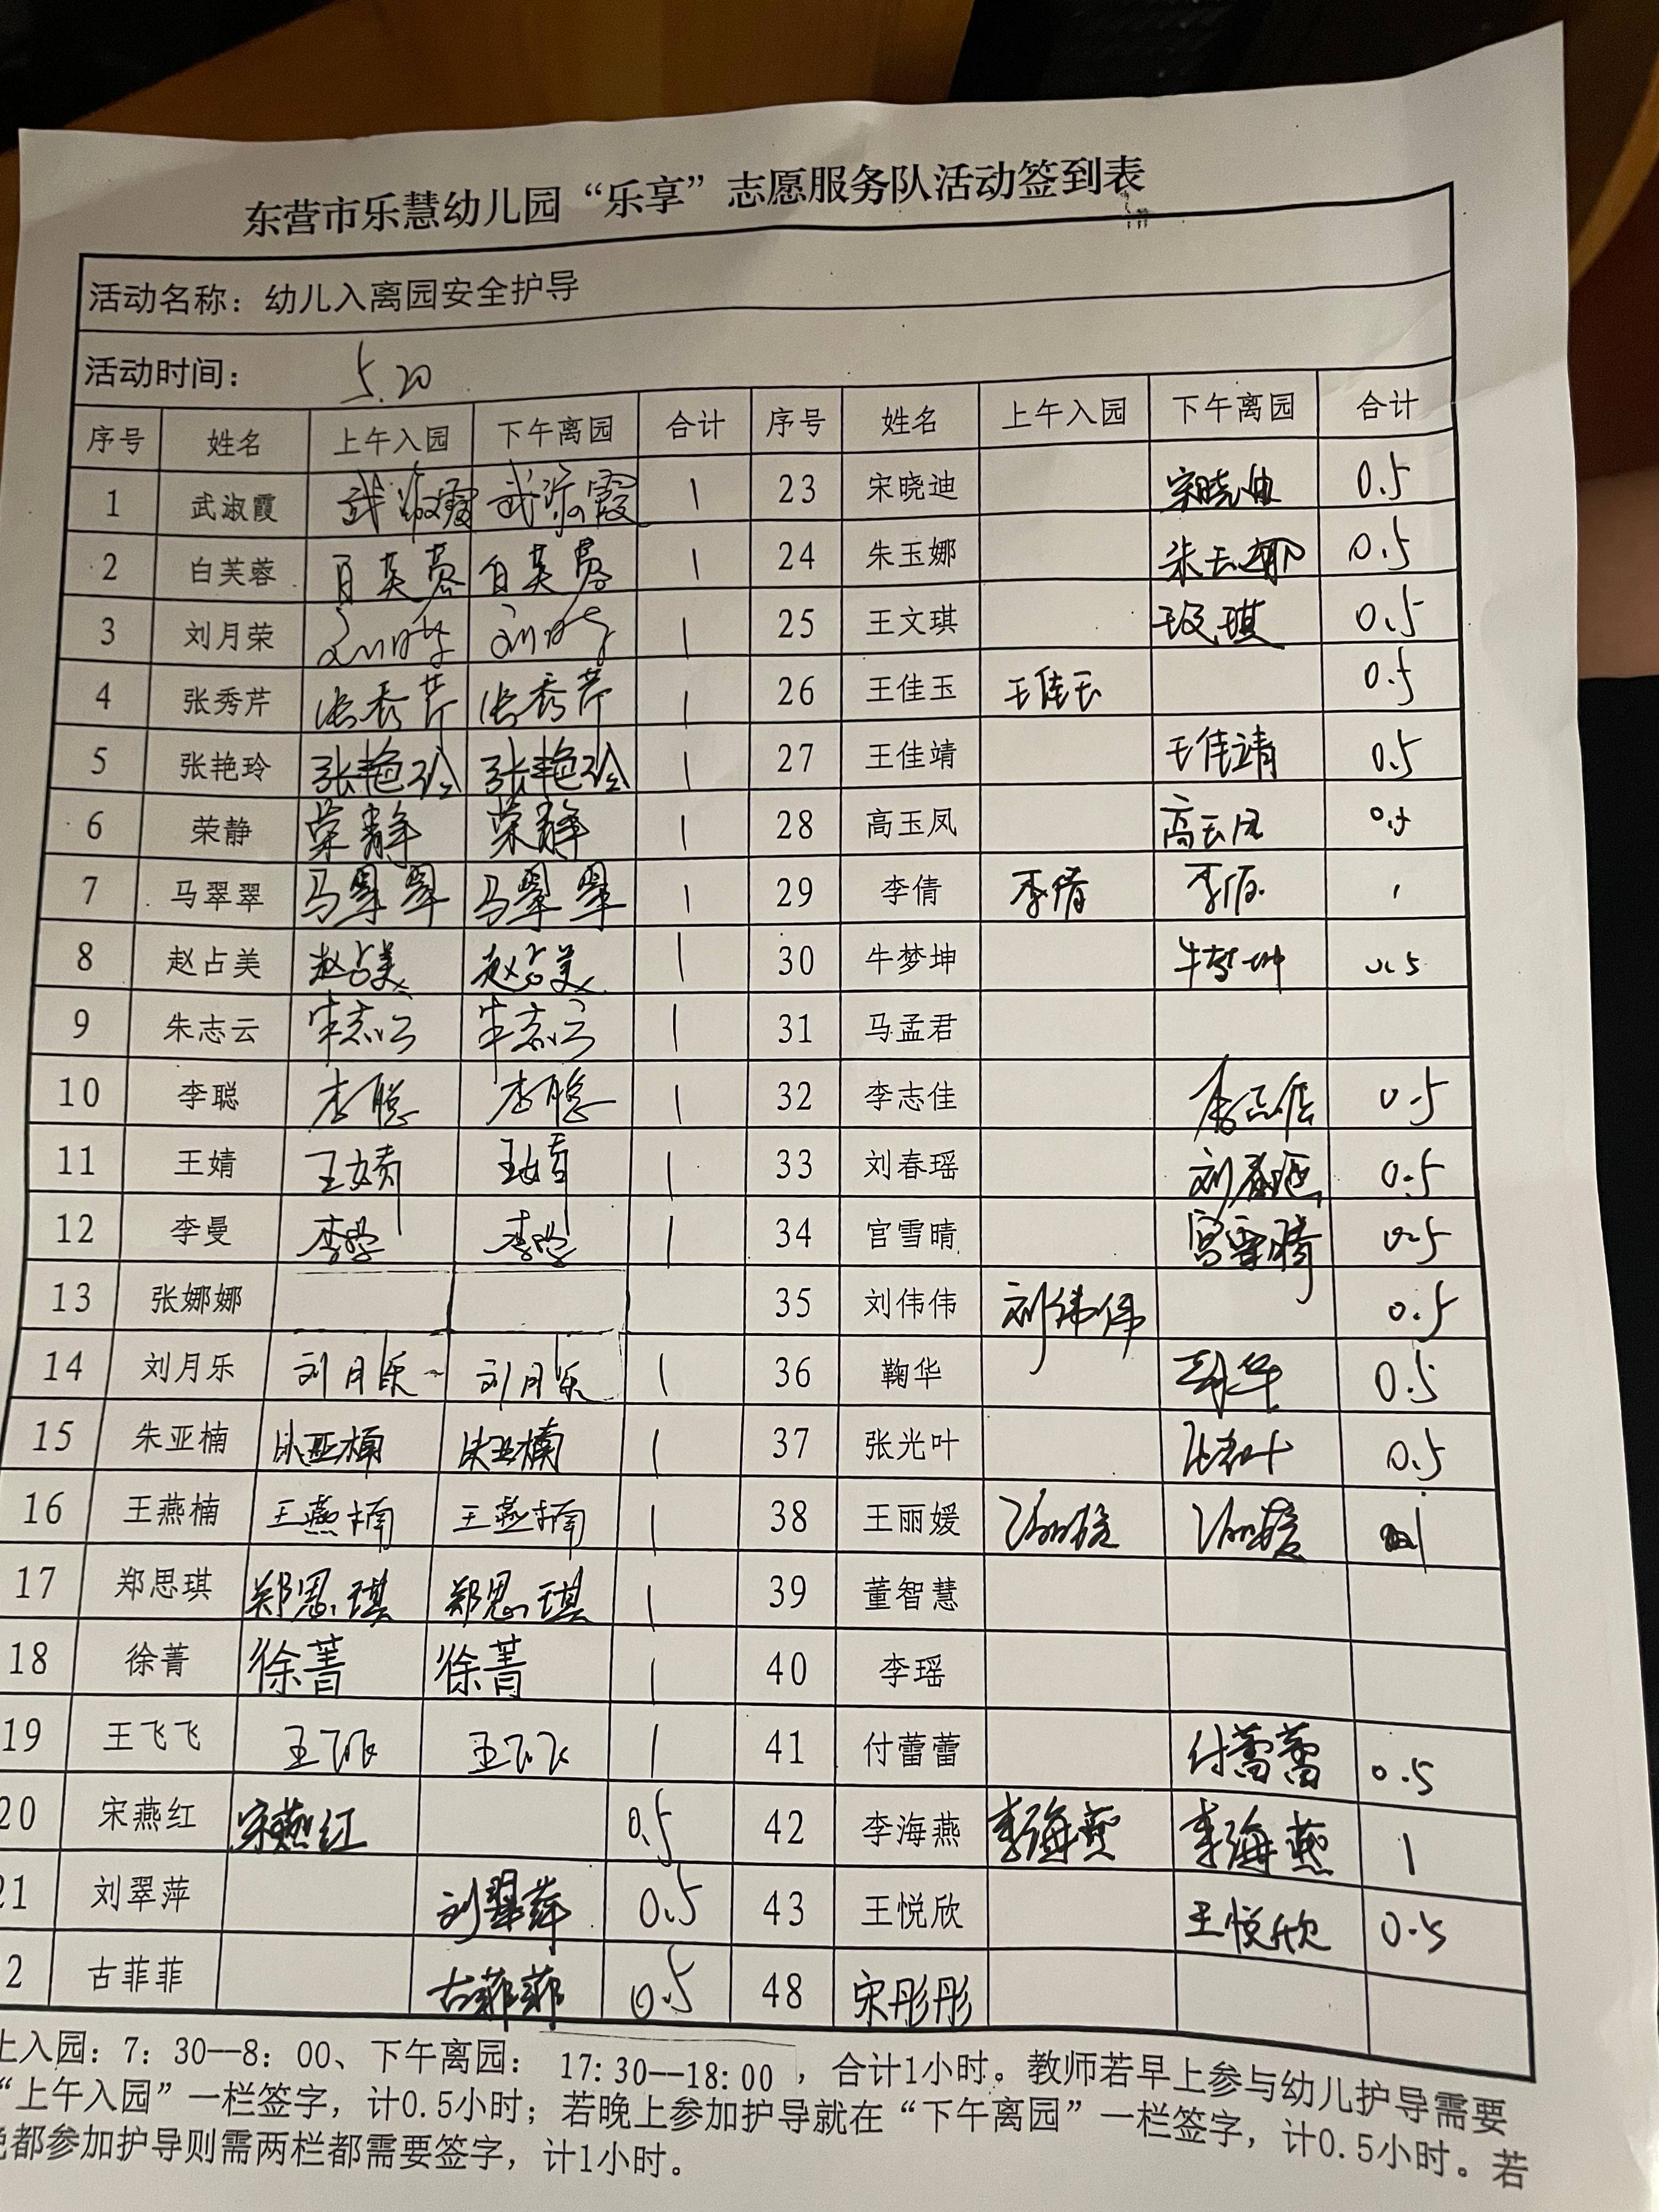 东营市乐慧幼儿园“乐享”志愿服务队活动签到表
活动名称：幼儿入离园安全护导
活动时间： 5.20
序号 姓名 上午入园 下午离园 合计 序号 姓名 上午入园 下午离园 合计
1 武淑霞 武淑霞 武淑霞 1 23 宋晓迪 宋晓迪 0.5
2 白芙蓉 白芙蓉 白芙蓉 1 24 朱玉娜 朱玉娜 0.5
3 刘月荣 刘月荣 刘月荣 1 25 王文琪 王文琪 0.5
4 张秀芹 张秀芹 张秀芹 1 26 王佳玉 王佳玉 0.5
5 张艳玲 张艳玲 张艳玲 1 27 王佳靖 王佳靖 0.5
6 荣静 荣静 荣静 1 28 高玉凤 高玉凤 0.5
7 马翠翠 马翠翠 马翠翠 1 29 李倩 李倩 李倩 1
8 赵占美 赵占美 赵占美 1 30 牛梦坤 牛梦坤 0.5
9 朱志云 朱志云 朱志云 1 31 马孟君
10 李聪 李聪 李聪 1 32 李志佳 李志佳 0.5
11 王婧 王婧 王婧 1 33 刘春瑶 刘春瑶 0.5
12 李曼 李曼 李曼 1 34 宫雪晴 宫雪晴 0.5
13 张娜娜 35 刘伟伟 刘伟伟 0.5
14 刘月乐 刘月乐 刘月乐 1 36 鞠华 鞠华 0.5
15 朱亚楠 朱亚楠 朱亚楠 1 37 张光叶 张光叶 0.5
16 王燕楠 王燕楠 王燕楠 1 38 王丽媛 王丽媛 王丽媛 1
17 郑思琪 郑思琪 郑思琪 1 39 董智慧
18 徐菁 徐菁 徐菁 1 40 李瑶
19 王飞飞 王飞飞 王飞飞 1 41 付蕾蕾 付蕾蕾 0.5
20 宋燕红 宋燕红 0.5 42 李海燕 李海燕 李海燕 1
21 刘翠萍 刘翠萍 0.5 43 王悦欣 王悦欣 0.5
2 古菲菲 古菲菲 0.5 48 宋彤彤
上入园：7：30—8：00、下午离园： 17:30—18:00 ，合计1小时。教师若早上参与幼儿护导需要
“上午入园”一栏签字，计0.5小时；若晚上参加护导就在“下午离园”一栏签字，计0.5小时。若
晚都参加护导则需两栏都需要签字，计1小时。